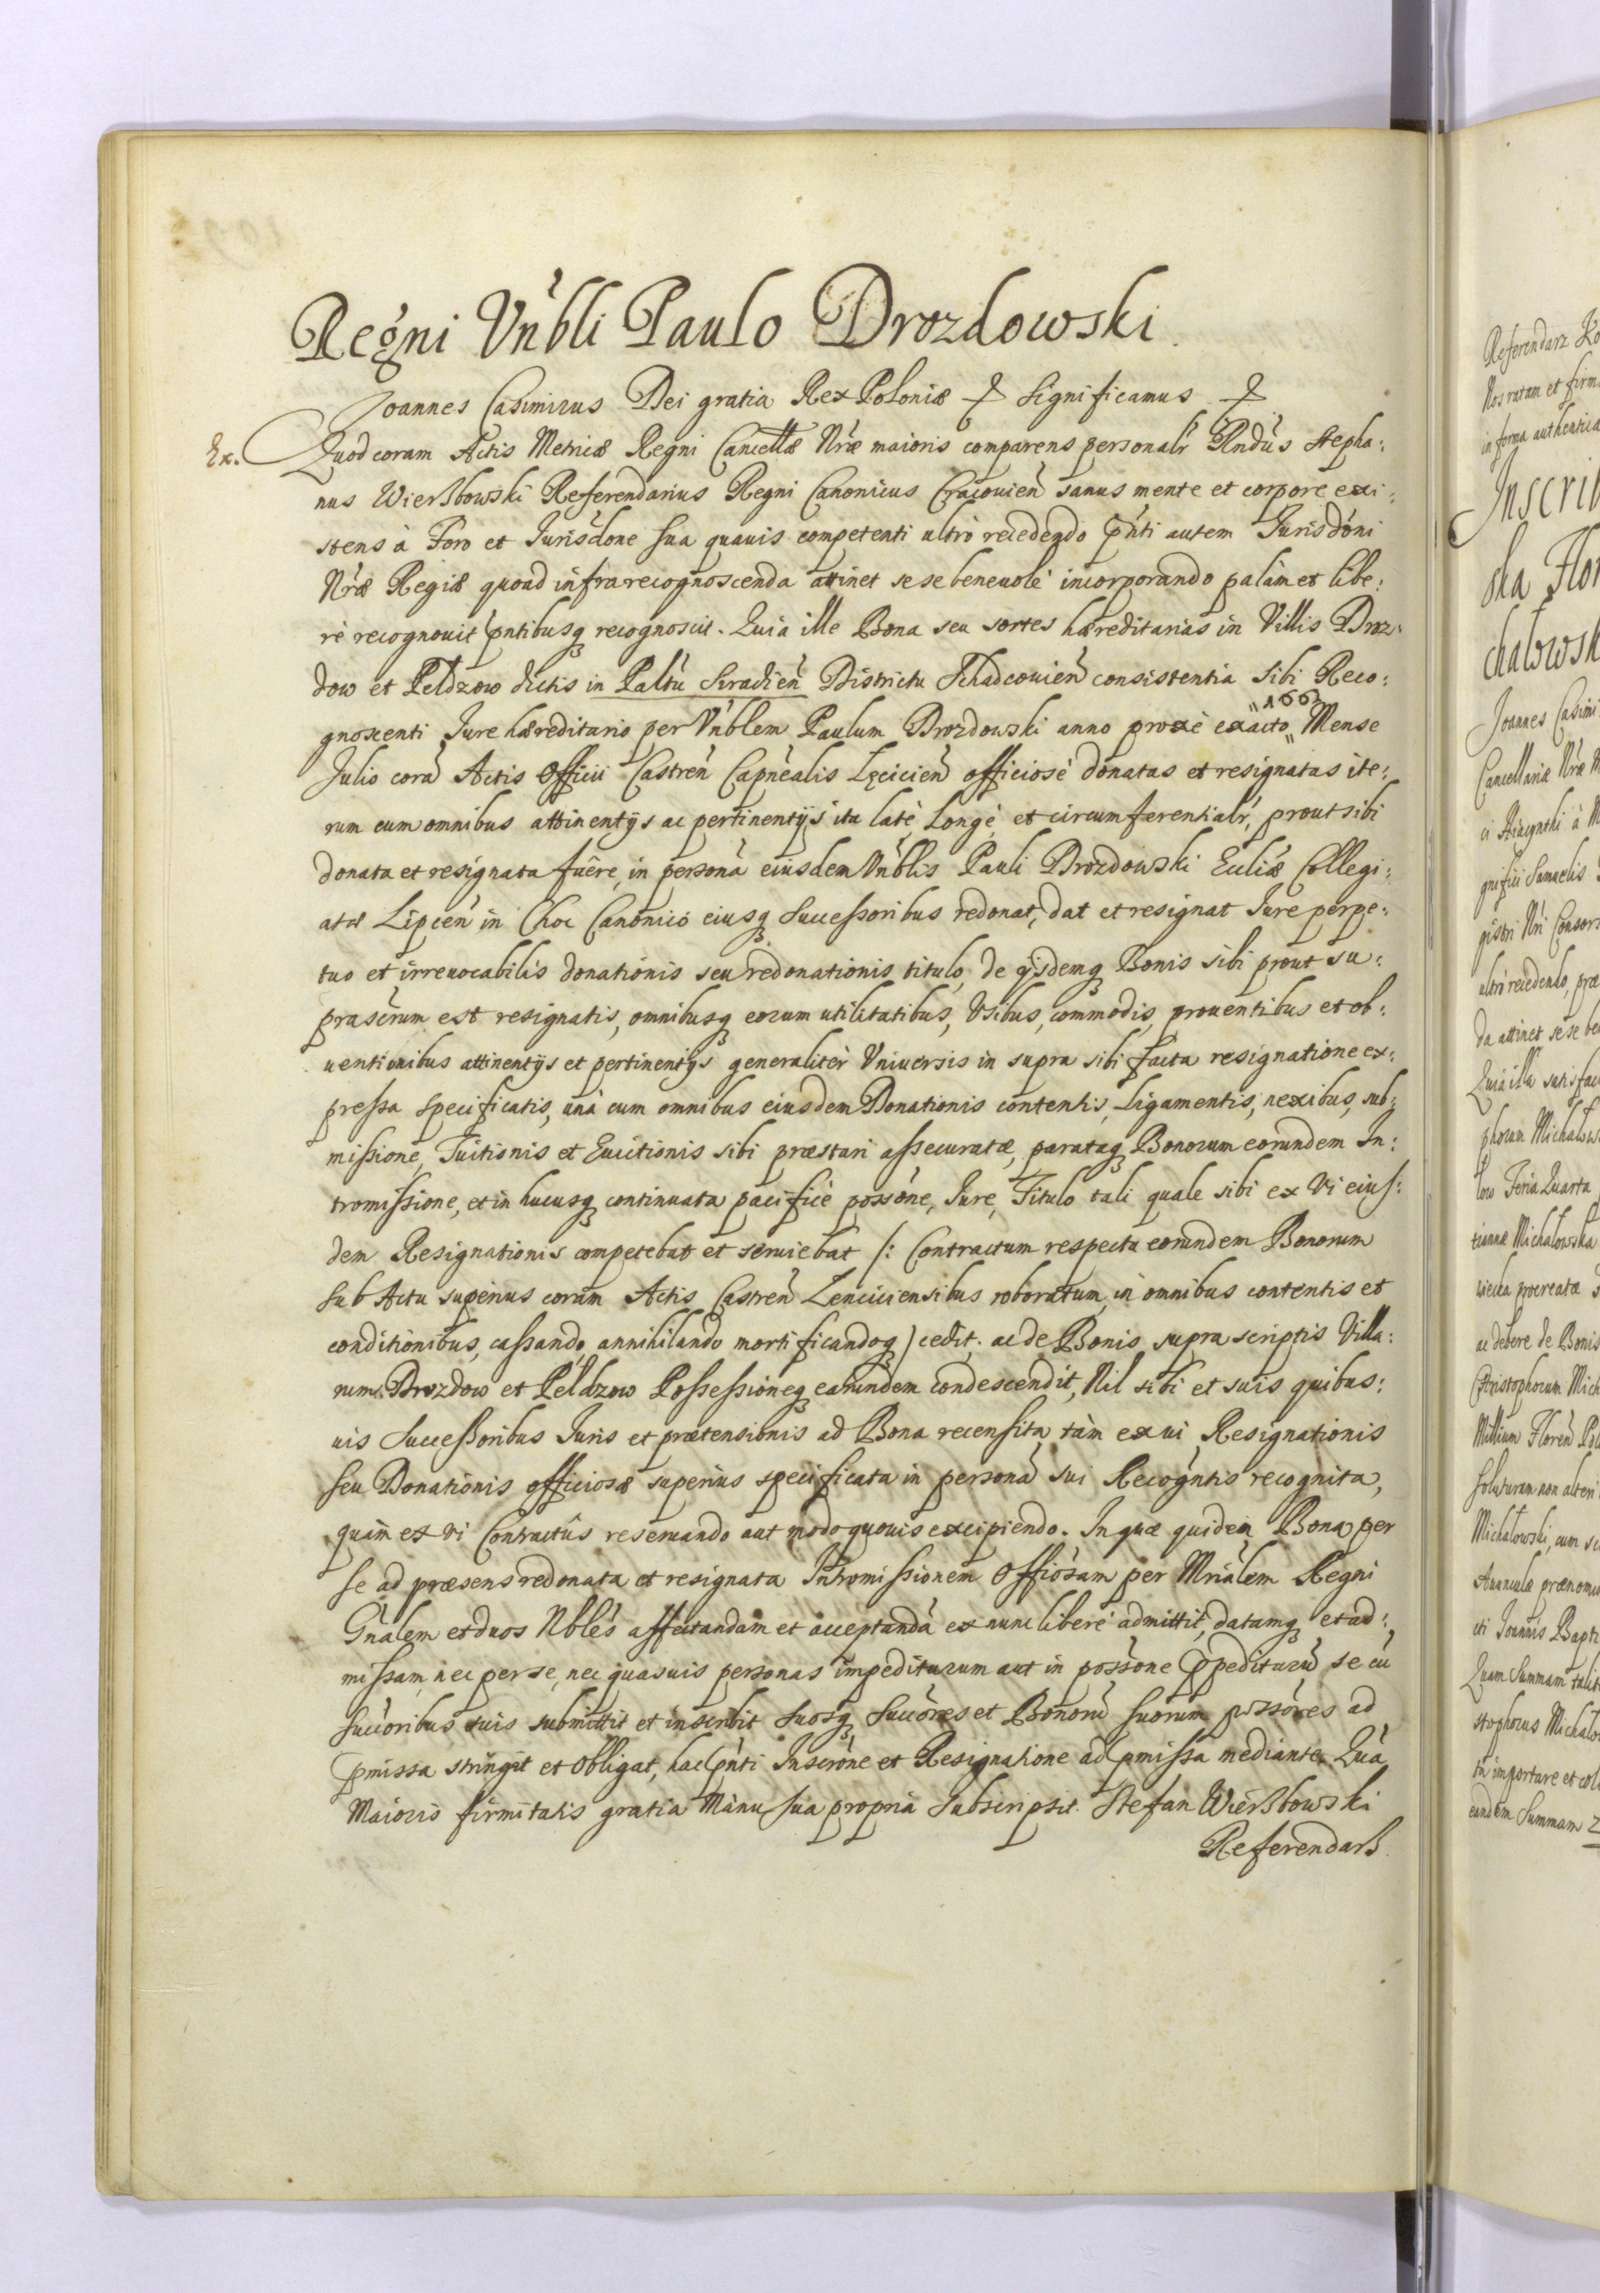 Regni Vńbli Paulo Drozdowski
Joannes Casimirus Dei gratia Rex Poloniæ significamus
Ex. Quod coram Actis Metricæ Regni Cancellæ Nræ maioris comparens personalr Rndus Stepha:
nus Wierßbowski Referendarius Regni Canonicus Cracouien sanus mente et corpore exi:
stens à Foro et Jurisdone sua quauis competenti ultrò recedendo pnti autem Jurisdoni
Nræ Regiæ quoad infrarecognoscenda attinet sese beneuolè incorporando palàm et libe:
rè recognouit pntibusq recognoscit. Quia ille Bona seu sortes hæreditarias in Villis Droz:
dow et Peldzow dictis in Paltu Siradien Districtu Schadcouien consistentia sibi Reco:
gnoscenti Jure hæreditario per Vnblem Paulum Drozdowski anno proxè exacto "166 Mense
Julio corã Actis Officii Castren Capnealis Lęcicien officiosè donatas et resignatas ite:
rum cum omnibus attinentijs ac pertinentijs ita latè longè et circumferentialr, prout sibi
donata et resignata fuêre, in personã eiusdem Vnblis Pauli Drozdowski Eccliæ Collegi:
atæ Lipcen in Choc Canonici eiusq Successoribus redonat, dat et resignat Jure perpe:
tuo et irreuocabilis donationis seu redonationis titulo, de ijsdemq Bonis sibi prout su:
prascrum est resignatis, omnibusq eorum utilitatibus, Vsibus, commodis, prouentibus et ob:
uentionibus attinentijs et pertinentijs generalitèr Vniuersis in supra sibi facta resignatione ex:
pressa specificatis, unà cum omnibus eiusdem Donationis contentis, Ligamentis, nexibus, sub:
missione, Tuitionis et Euictionis sibi præstari assecuratæ, parataq Bonorum eorundem In:
tromissione, et in hucusq continuata pacificè possone, Jure, Titulo tali quale sibi ex Vi eius:
dem Resignationis competebat et seruiebat /: Contractum respectu eorundem Bonorum
sub Actu superius coram Actis Castren Lenciciensibus roboratum, in omnibus contentis et
conditionibus, cassando, annihilando mortificandoq / cedit. ac de Bonis supra scriptis Villa:
rum Drozdow et Peldzow Possessioneq earundem condescendit, Nil sibi et suis quibus:
uis Successoribus Juris et prætensionis ad Bona recensita, tàm ex ui Resignationis
seu Donationis officiosæ superius specificata in personã sui Recogntis recognita,
quàm ex vi Contractus reseruando aut modo quouis excipiendo. In quæ quidem Bona per
se ad præsens redonata et resignata Intromissionem Offiosam per Mrialem Regni
Gnalem et duos Nbles affectandam et acceptandã ex nunc liberè admittit, datamq et ad:
missam, nec per se, nec quasuis personas impediturum aut in possone ppediturũ se cũ
succoribus suis submittit et inscribit suosq Succores et Bonorũ suorum possores ad
pmissa stringit et obligat, hac pnti Inscrone et Resignatione ad pmissa mediante. Quã
Maioris firmitatis gratia Manu sua propria subscripsit. Stefan Wierßbowski
Referendarß
Referendarz Ko
Nos ratam et firm
in forma authentica
Inscrib
ska Flor
chałowsk
Joannes Casimi
Cancellariæ Nræ M
ci Hiacynthi à
gnifici Samuelis
gistri Nri Consor
ultrò recedendo, præ
da attinet sese be
Quia illa satisfac
phorum Michałows
low Feria Quarta
tianna Michałowska
wiecka procreatæ
ac debere de Bonis
Christophorum Mich
Millium Floren Pol
soluturam non alteri
Michałowski, cum su
Auunculæ prænomi
cti Joannis Bapti
Quam Summam talit
stophorus Michałow
tù importare et col
eandem Summam